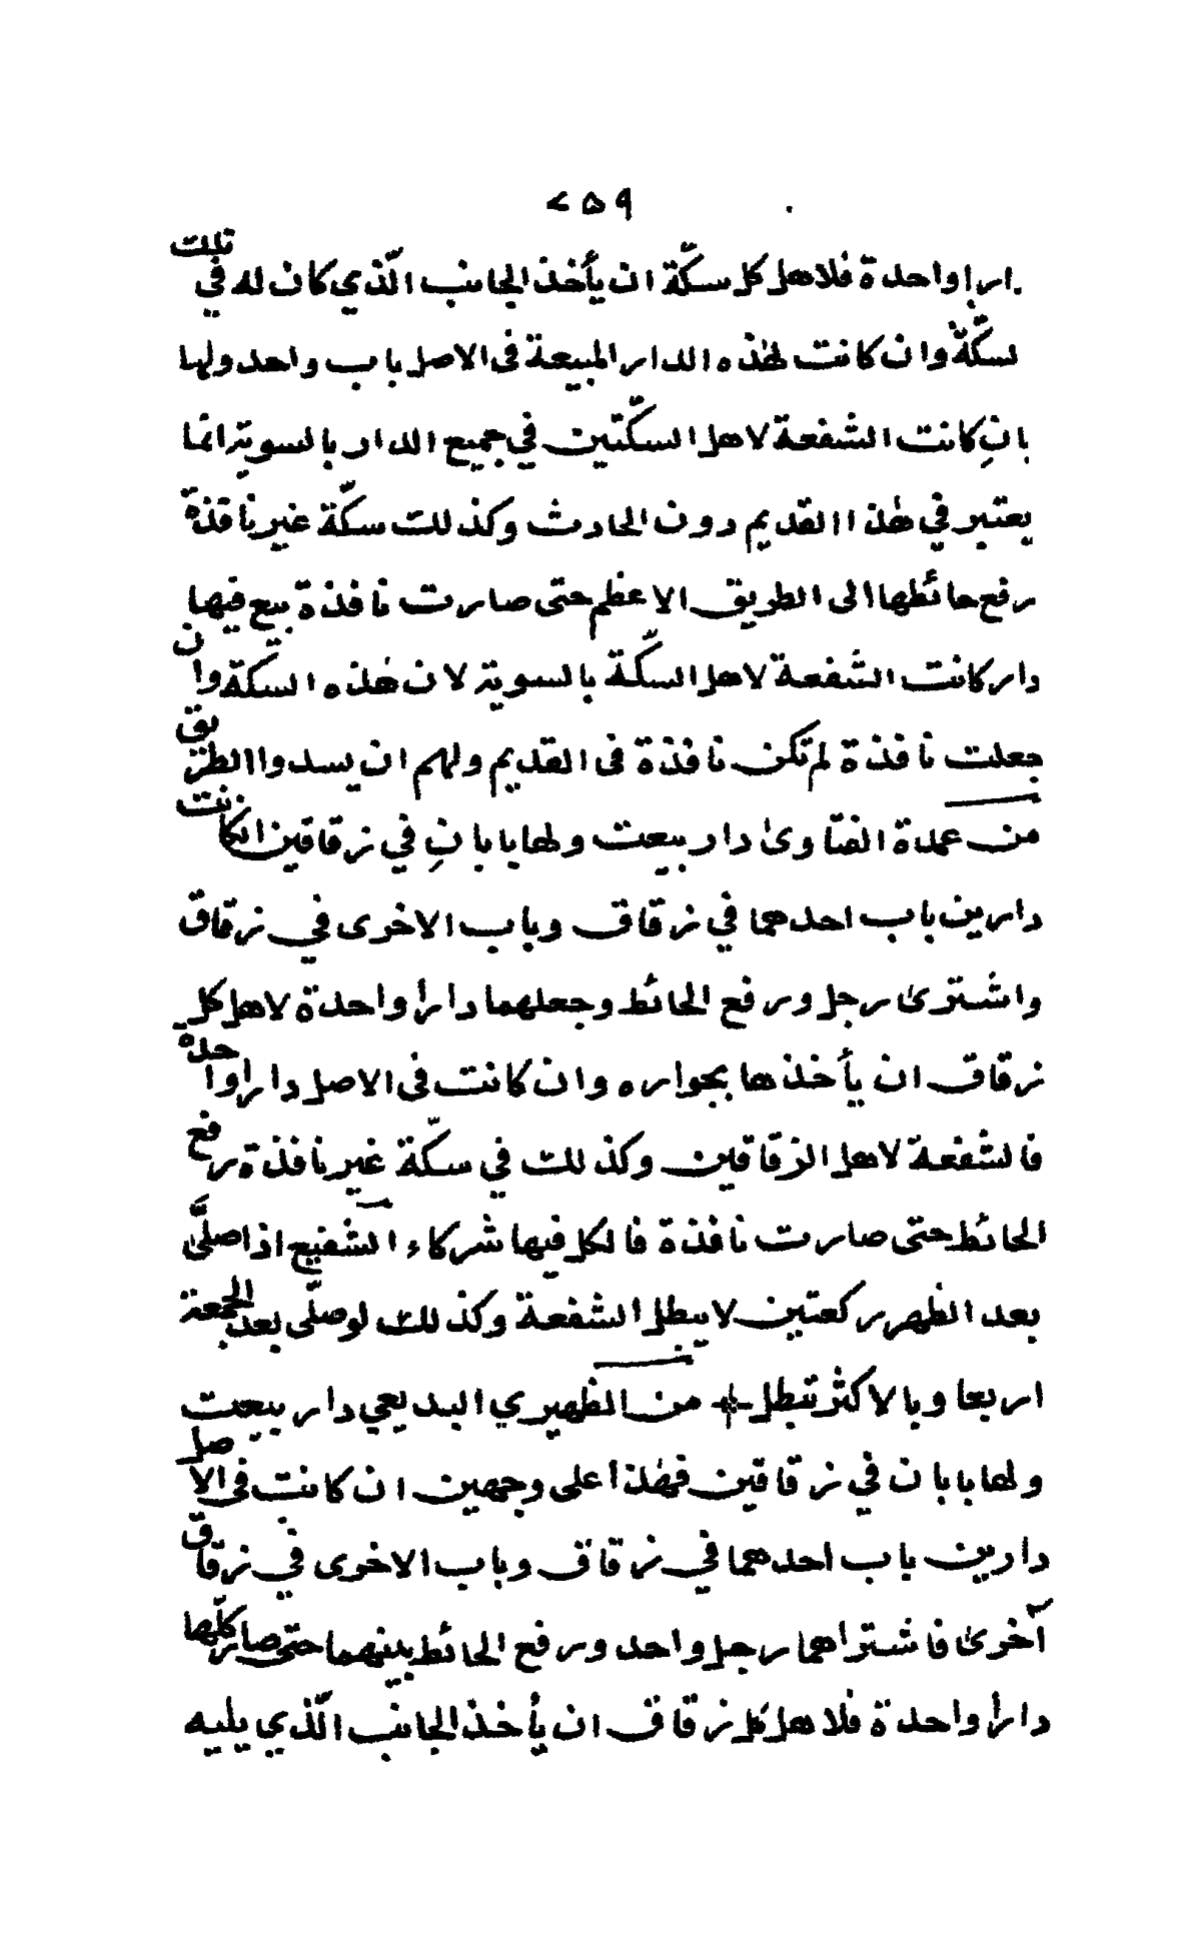 ٢٥٩
ارا واحدة فلاهل كل سكّة ان يأخذ الجانب الّذي كان له في تلك
لسكّة وان كانت لهٰذه الدار المبيعة فى الاصل باب واحد ولها
بانِ كانت الشفعة لاهل السكّتين في جميع الدار بالسوية انما
يعتبر في هٰذا القديم دون الحادث وكذلك سكّة غير نافذة
رفع حائطها الى الطريق الاعظم حتى صارت نافذة بيع فيها
دار كانت الشفعة لاهل السكّة بالسوية لان هٰذه السكة وان
جعلت نافذة لم تكن نافذة فى القديم ولهم ان يسدوا الطريق
من عمدة الفتاوىٰ دار بيعت ولها بابانِ في زقاقين ان كانت
دارين باب احدهما في زقاق وباب الاخرى في زقاق
واشترىٰ رجل ورفع الحائط وجعلهما داراً واحدة لاهل كل
زقاق ان يأخذها بجواره وان كانت فى الاصل دارا واحدة
فالشفعة لاهل الزقاقين وكذلك في سكّة غير نافذة رفع
الحائط حتى صارت نافذة فالكل فيها شركاء الشفيع اذا صلّىٰ
بعد الظهر ركعتين لا يبطل الشفعة وكذلك لو صلّى بعد الجمعة
اربعا وبالاكثر تبطل من الظهيري البديعي دار بيعت
ولها بابان في زقاقين فهٰذا على وجهين ان كانت فى الاصل
دارين باب احدهما في زقاق وباب الاخرى في زقاق
آخرىٰ فاشتراهما رجل واحد ورفع الحائط بينهما حتى صار كلّها
داراً واحدة فلاهل كل زقاق ان يأخذ الجانب الّذي يليه